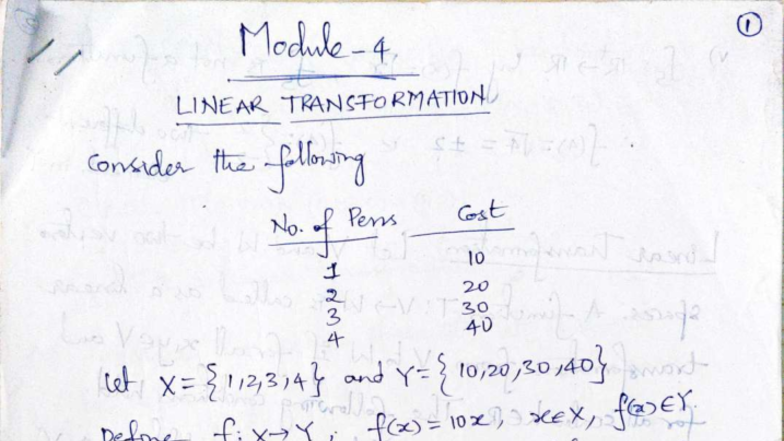 ①
Module-4
LINEAR TRANSFORMATION
Consider the following
No. of Pens Cost
1 10
2 20
3 30
4 40
Let X = {1,2,3,4} and Y = {10,20,30,40}
Define f: X→Y ; f(x) = 10x, x∈X, f(x)∈Y.